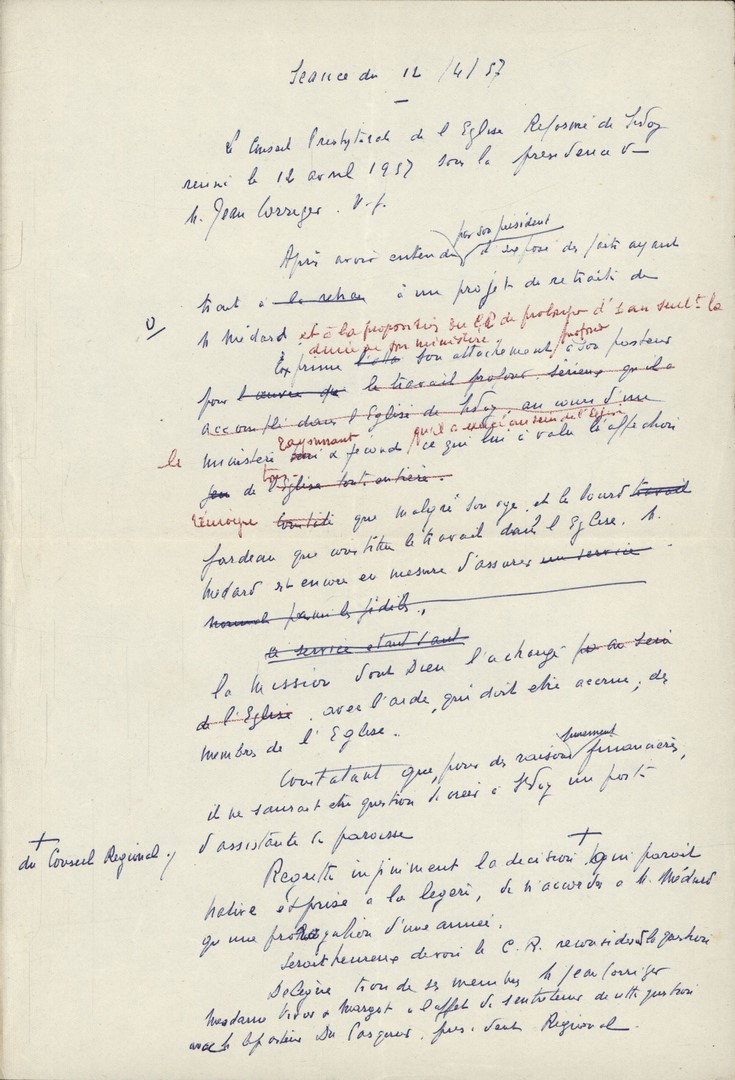 Séance du 12 /4/57
Le Conseil Presbytéral de l'Eglise Reformé de
reuni le 12 avril 1957 sous la présidence de
M. Jean Corriger. V.p.
par son président
Après avoir entendu l'exposé des faits ayant
trait à la retrai à un projet de retraite de
M Médard et à la proposition du CR de prolonger d'1 an seult la
durée de son ministère
profond
Exprime son attachement à son pasteur
pour l'œuvre que le travail profond. sérieux qu'il a
accompli dans l'Eglise de au cours d'un
rayonnant qu'il a exercé au sein de l'Eglise
le ministère & fécond ce qui lui à valu l'affection
tous
de l'Eglise tout entière.
que malgré son age et le lourd travail
fardeau que constitue le travail dans l'Eglise. M.
Médard est encore en mesure d'assurer un service
normale parmi les fidèles,
le service étant tant
la Mission dont Dieu l'a chargé au sein
de l'Eglise. avec l'aide, qui doit etre accrue, des
membres de l'Eglise.
purement
Constatant que, pour des raisons financières,
il ne saurait etre question de créer à un poste
d'assistante de paroisse
+
du Conseil Régional
Regrette infiniment la decision + qui parait
hative & prise a la légère, de n'accorder a M. Médard
qu'une prolongation d'une année.
Serait heureux de voir le C. R. reconsidérer la question
Délègue trois de ses membres M Jean Corriger
Madame & Margot a l'effet de s'entretenir de cette question
avec le pasteur Du Pasquier, président Régional.